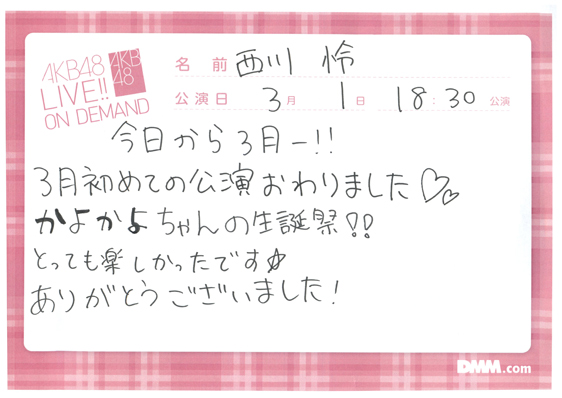 AKB48
LIVE!!
ON DEMAND
AKB
48
名前 西川 怜
公演日 3月 1日 18:30 公演
今日から3月ー!!
3月初めての公演おわりました♡♡
かよかよちゃんの生誕祭!!
とっても楽しかったです☆
ありがとうございました!
DMM.com